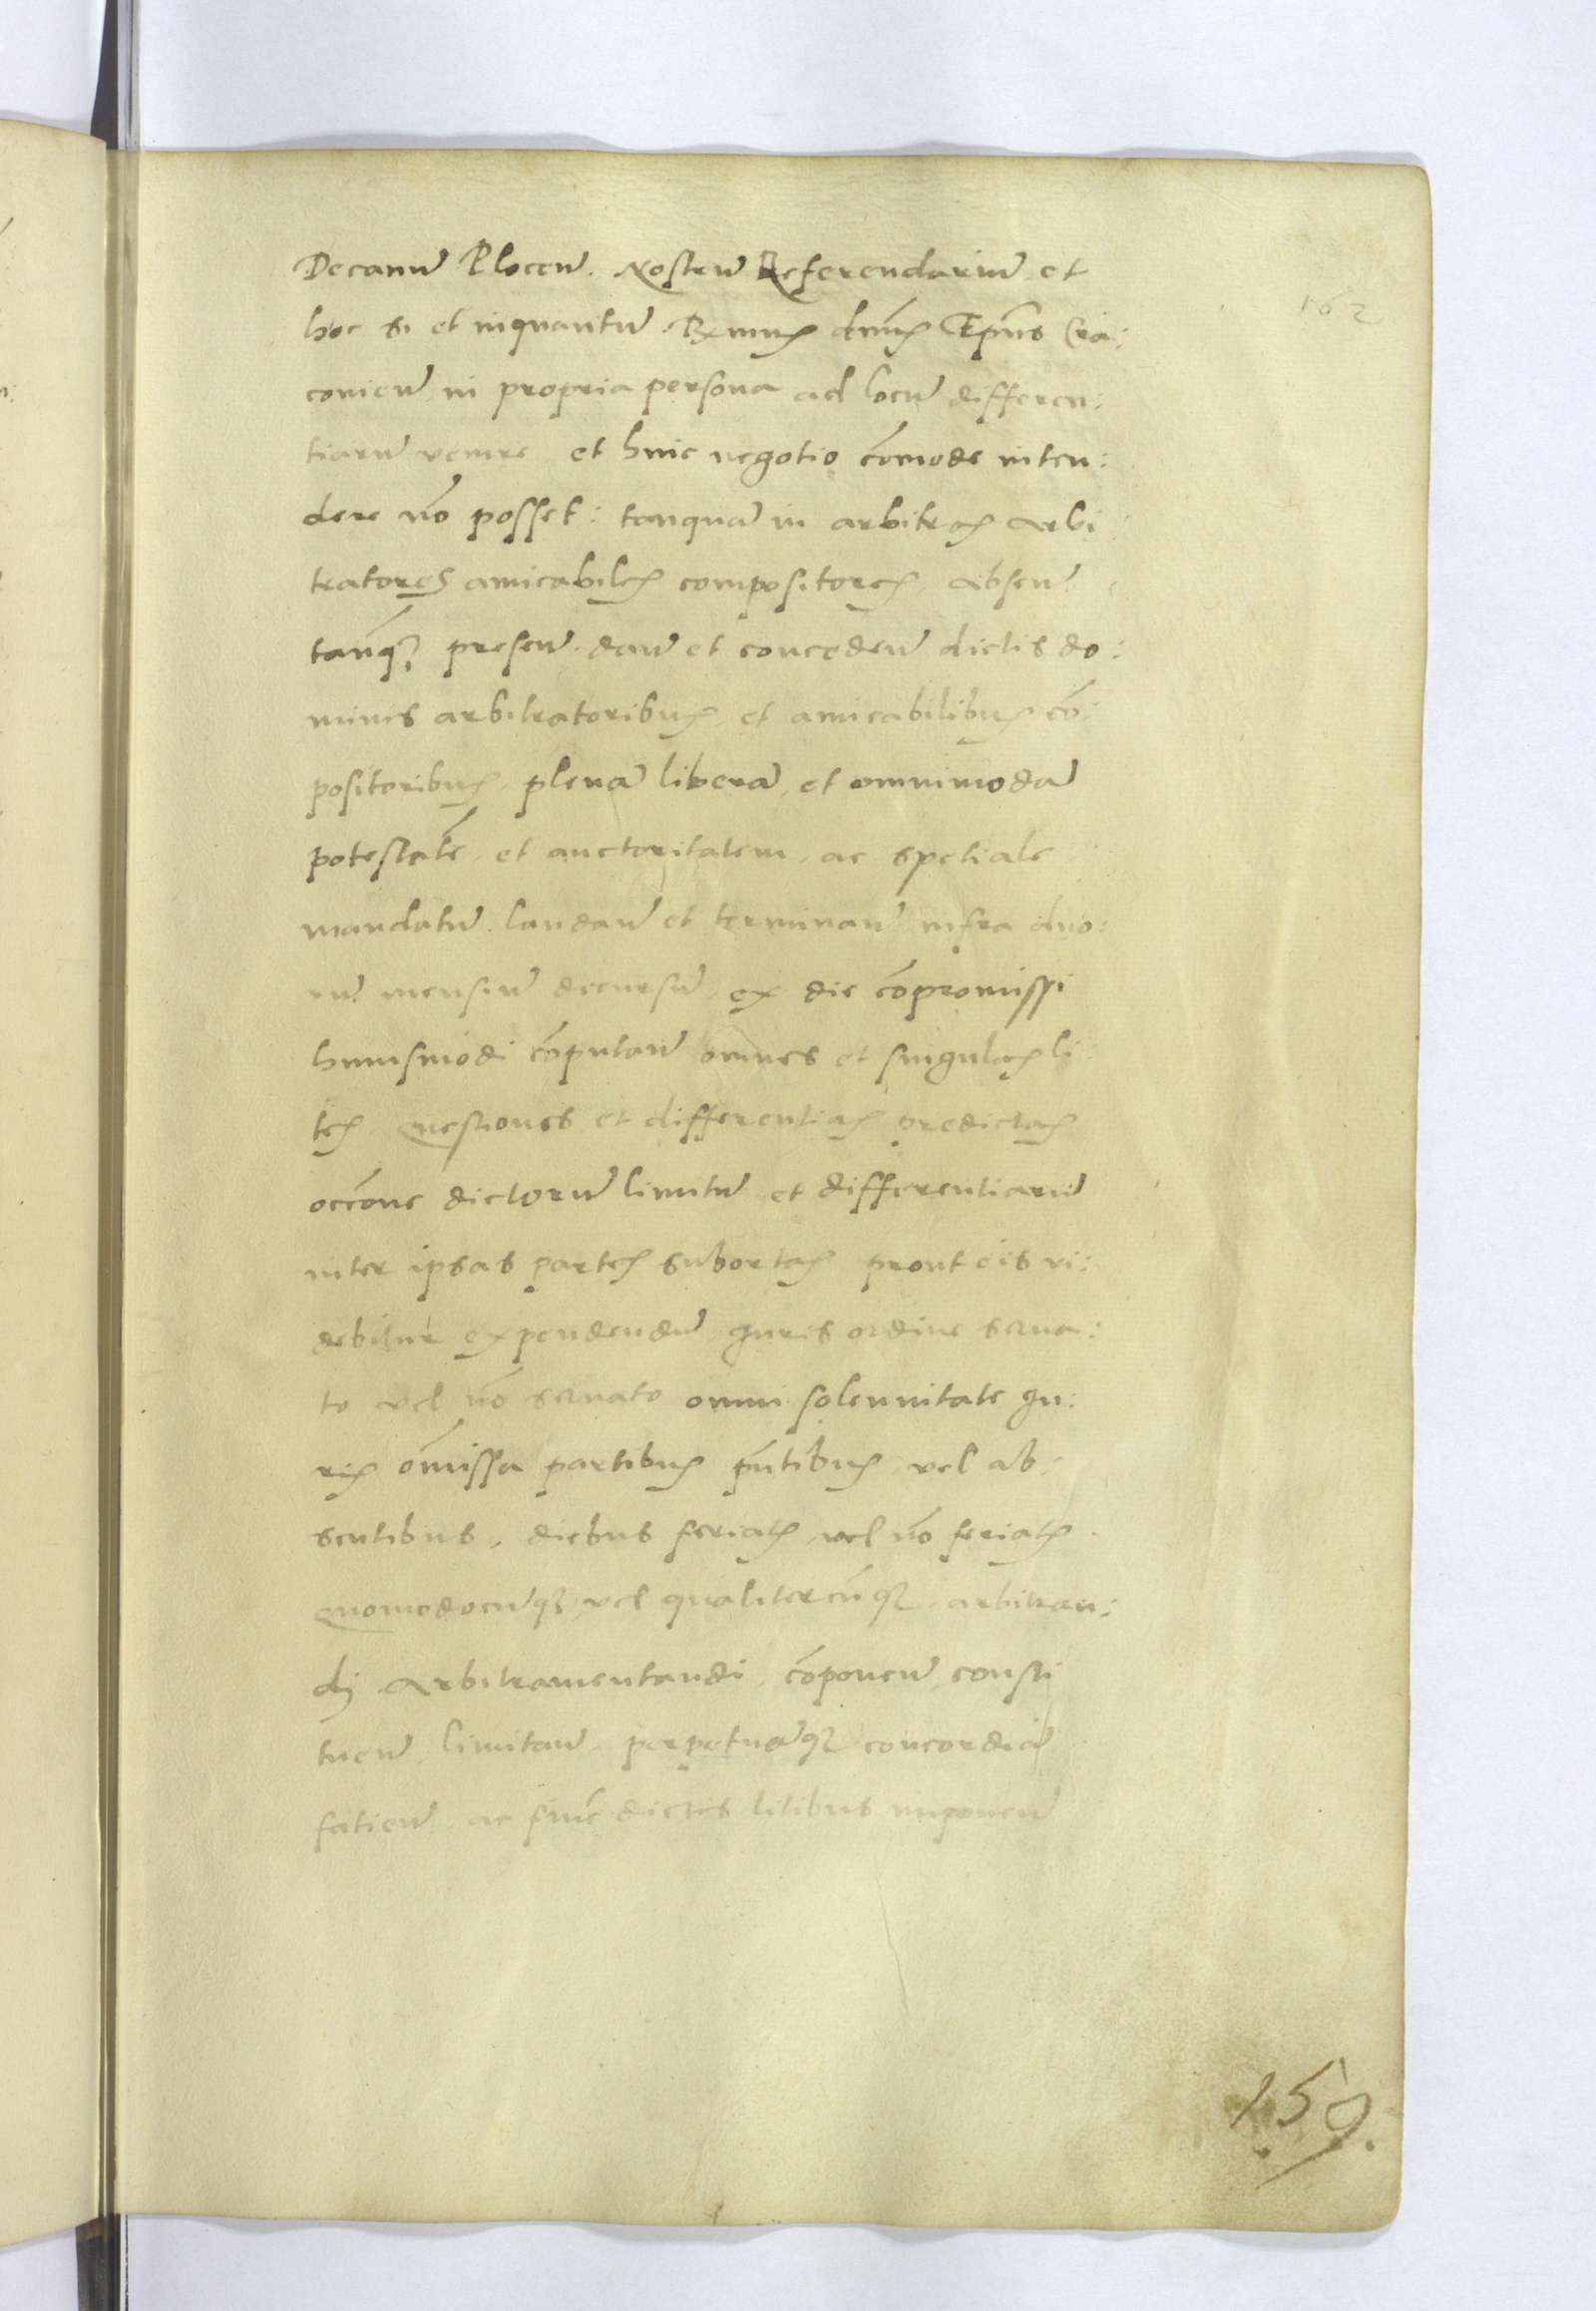 Decanū Plocen̄. Nostrū Referendariū et
162
hoc si et inquantū Rx̄mus dn̄us Ep̄us Cra:
covien̄ in propria persona ad locū differen:
tiarū venire et huic negotio cōmode inten:
dere nō posset: tanquā in arbitros arbi
tratores amicabiles compositores absen̄
tanq̄ presen̄ dan̄ et conceden̄ dictis do:
minis arbitratoribus et amicabilibus cō:
positoribus plenā liberā et omnimodā
potestatē et auctoritatem ac spetiale
mandatū laudan̄ et terminan̄ infra duo:
rū mensiū decursū ex die cōpromissi
huiusmodi cōputan̄ omnes et singulas li
tes questiones et differentias predictas
occ̄one dictorū limitū et differentiarū
inter ipsas partes subortas prout eis vi:
debitur expendendū Juris ordine serva:
to vel nō servato omni solennitate Ju:
ris omissa partibus pn̄tibus vel ab:
sentibus, diebus feriatis vel nō feriatis
quomodocūq; vel qualitercūq; arbitran:
dj Arbitramentandi cōponen̄ consti
tuen̄ limitan̄ perpetuāq; concordiā
fatien̄ ac finē dictis litibus imponen̄
159.